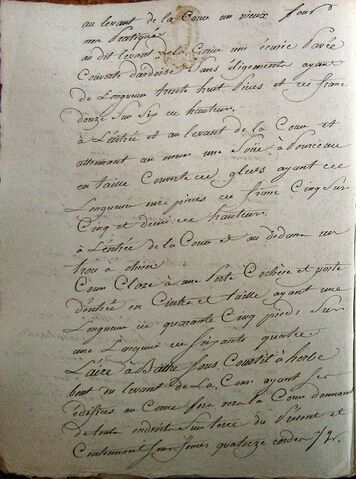 au levant de la Cour un vieux four
non Pratiqué
au dit levant de la Cour une écurie Pavée
Couverte dardoise Sans étgements ayant
de Longueur trente huit Pieds et en franc
douze Sur Six en hauteur.
a Lentrée et au levant de la Cour et
attennant au mur une Soüe à Pourceau
en taille Couverte en gleds ayant en
Longueur onze pieds en franc Cinq Sur
Cinq et demi en hauteur.
a Lentrée de la Cour et au dedans un
trou a chien
Cour Close à une Porte Cochère et porte
d'entrée en Cintre et taille ayant une
Longueur en quarante Cinq pieds Sur
une Largeur en Soixante quatre
L'aire à Battre Sous Courtil à herbe
bout du levant de La Cour ayant Ses
édifices au Corne vers la Cour donnant
de toute endroits Sur terre du Présent et
Contennant Sous fonds quatorze cordes 1/2.